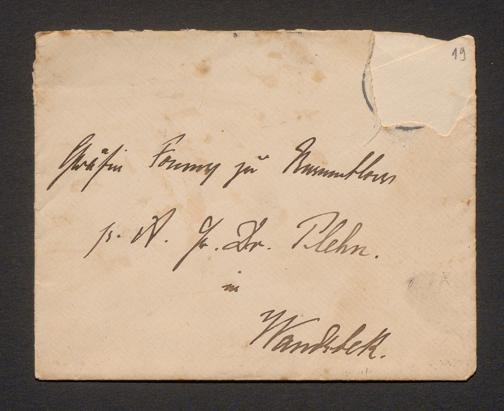 19
Gräfin Fanny zu
p. A. Dr. Plehn.
in
Wandsbek.